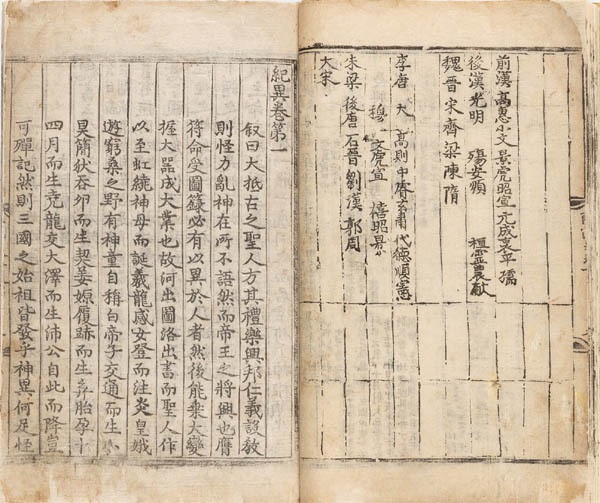 前漢 高惠小文景虎昭宣元成哀平孺
後漢 光明 殤安順 桓靈農献
魏晉宋齊梁陳隋
李唐 太 高則中睿玄肅代德順憲
穆 文虎宣 僖昭景
朱梁 後唐 石晉 劉漢 郭周
大宋
紀異卷第一
叙曰大抵古之聖人方其禮樂興邦仁義設敎
則怪力亂神在所不語然而帝王之將興也膺
符命受圖籙必有以異於人者然後能乘大變
握大器成大業也故河出圖洛出書而聖人作
以至虹繞神母而誕羲龍感女登而注炎皇娥
遊窮桑之野有神童自稱白帝子交通而生小
昊簡狄吞卵而生契姜嫄履跡而生弃胎孕十
四月而生堯龍交大澤而生沛公自此而降豈
可殫記然則三國之始祖皆發乎神異何足怪